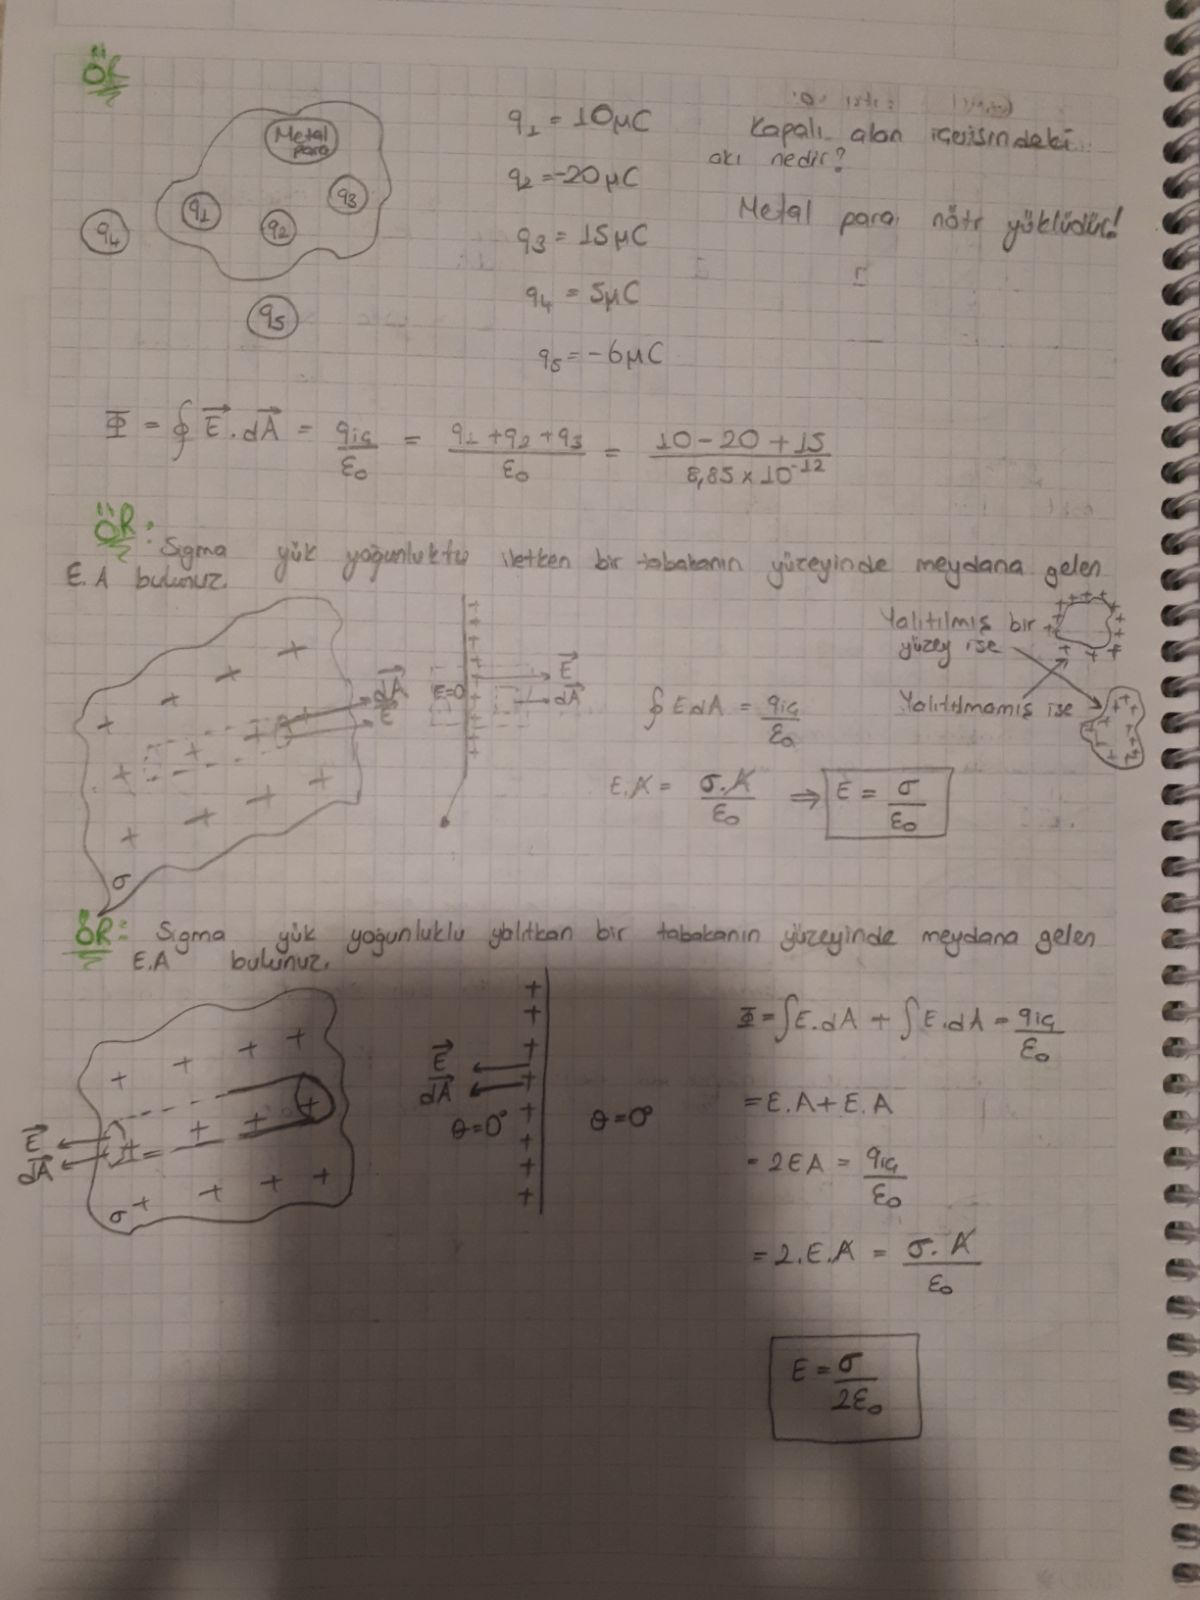 ÖR
Metal
para
q1
q2
q3
q4
q5
q1 = 10μC
q2 = -20μC
q3 = 15μC
q4 = 5μC
q5 = -6μC
Kapalı alan içerisindeki
akı nedir?
Metal para nötr yüklüdür!
Φ = ∮ E . dA = qiç/ε0 = (q1 + q2 + q3)/ε0 = (10 - 20 + 15)/(8,85 x 10^-12)
ÖR: Sigma yük yoğunluktu iletken bir tabakanın yüzeyinde meydana gelen
E.A bulunuz.
dA
E
σ
E=0
E
dA
Yalıtılmış bir
yüzey ise
Yalıtılmamış ise
∮ E dA = qiç/ε0
E.A = σ.A/ε0 ⇒ E = σ/ε0
ÖR: Sigma yük yoğunluklu yalıtkan bir tabakanın yüzeyinde meydana gelen
E.A bulunuz.
E
dA
σ
E
dA
θ=0°
θ=0°
Φ = ∫E.dA + ∫E.dA = qiç/ε0
= E.A + E.A
= 2EA = qiç/ε0
= 2.E.A = σ.A/ε0
E = σ/2ε0